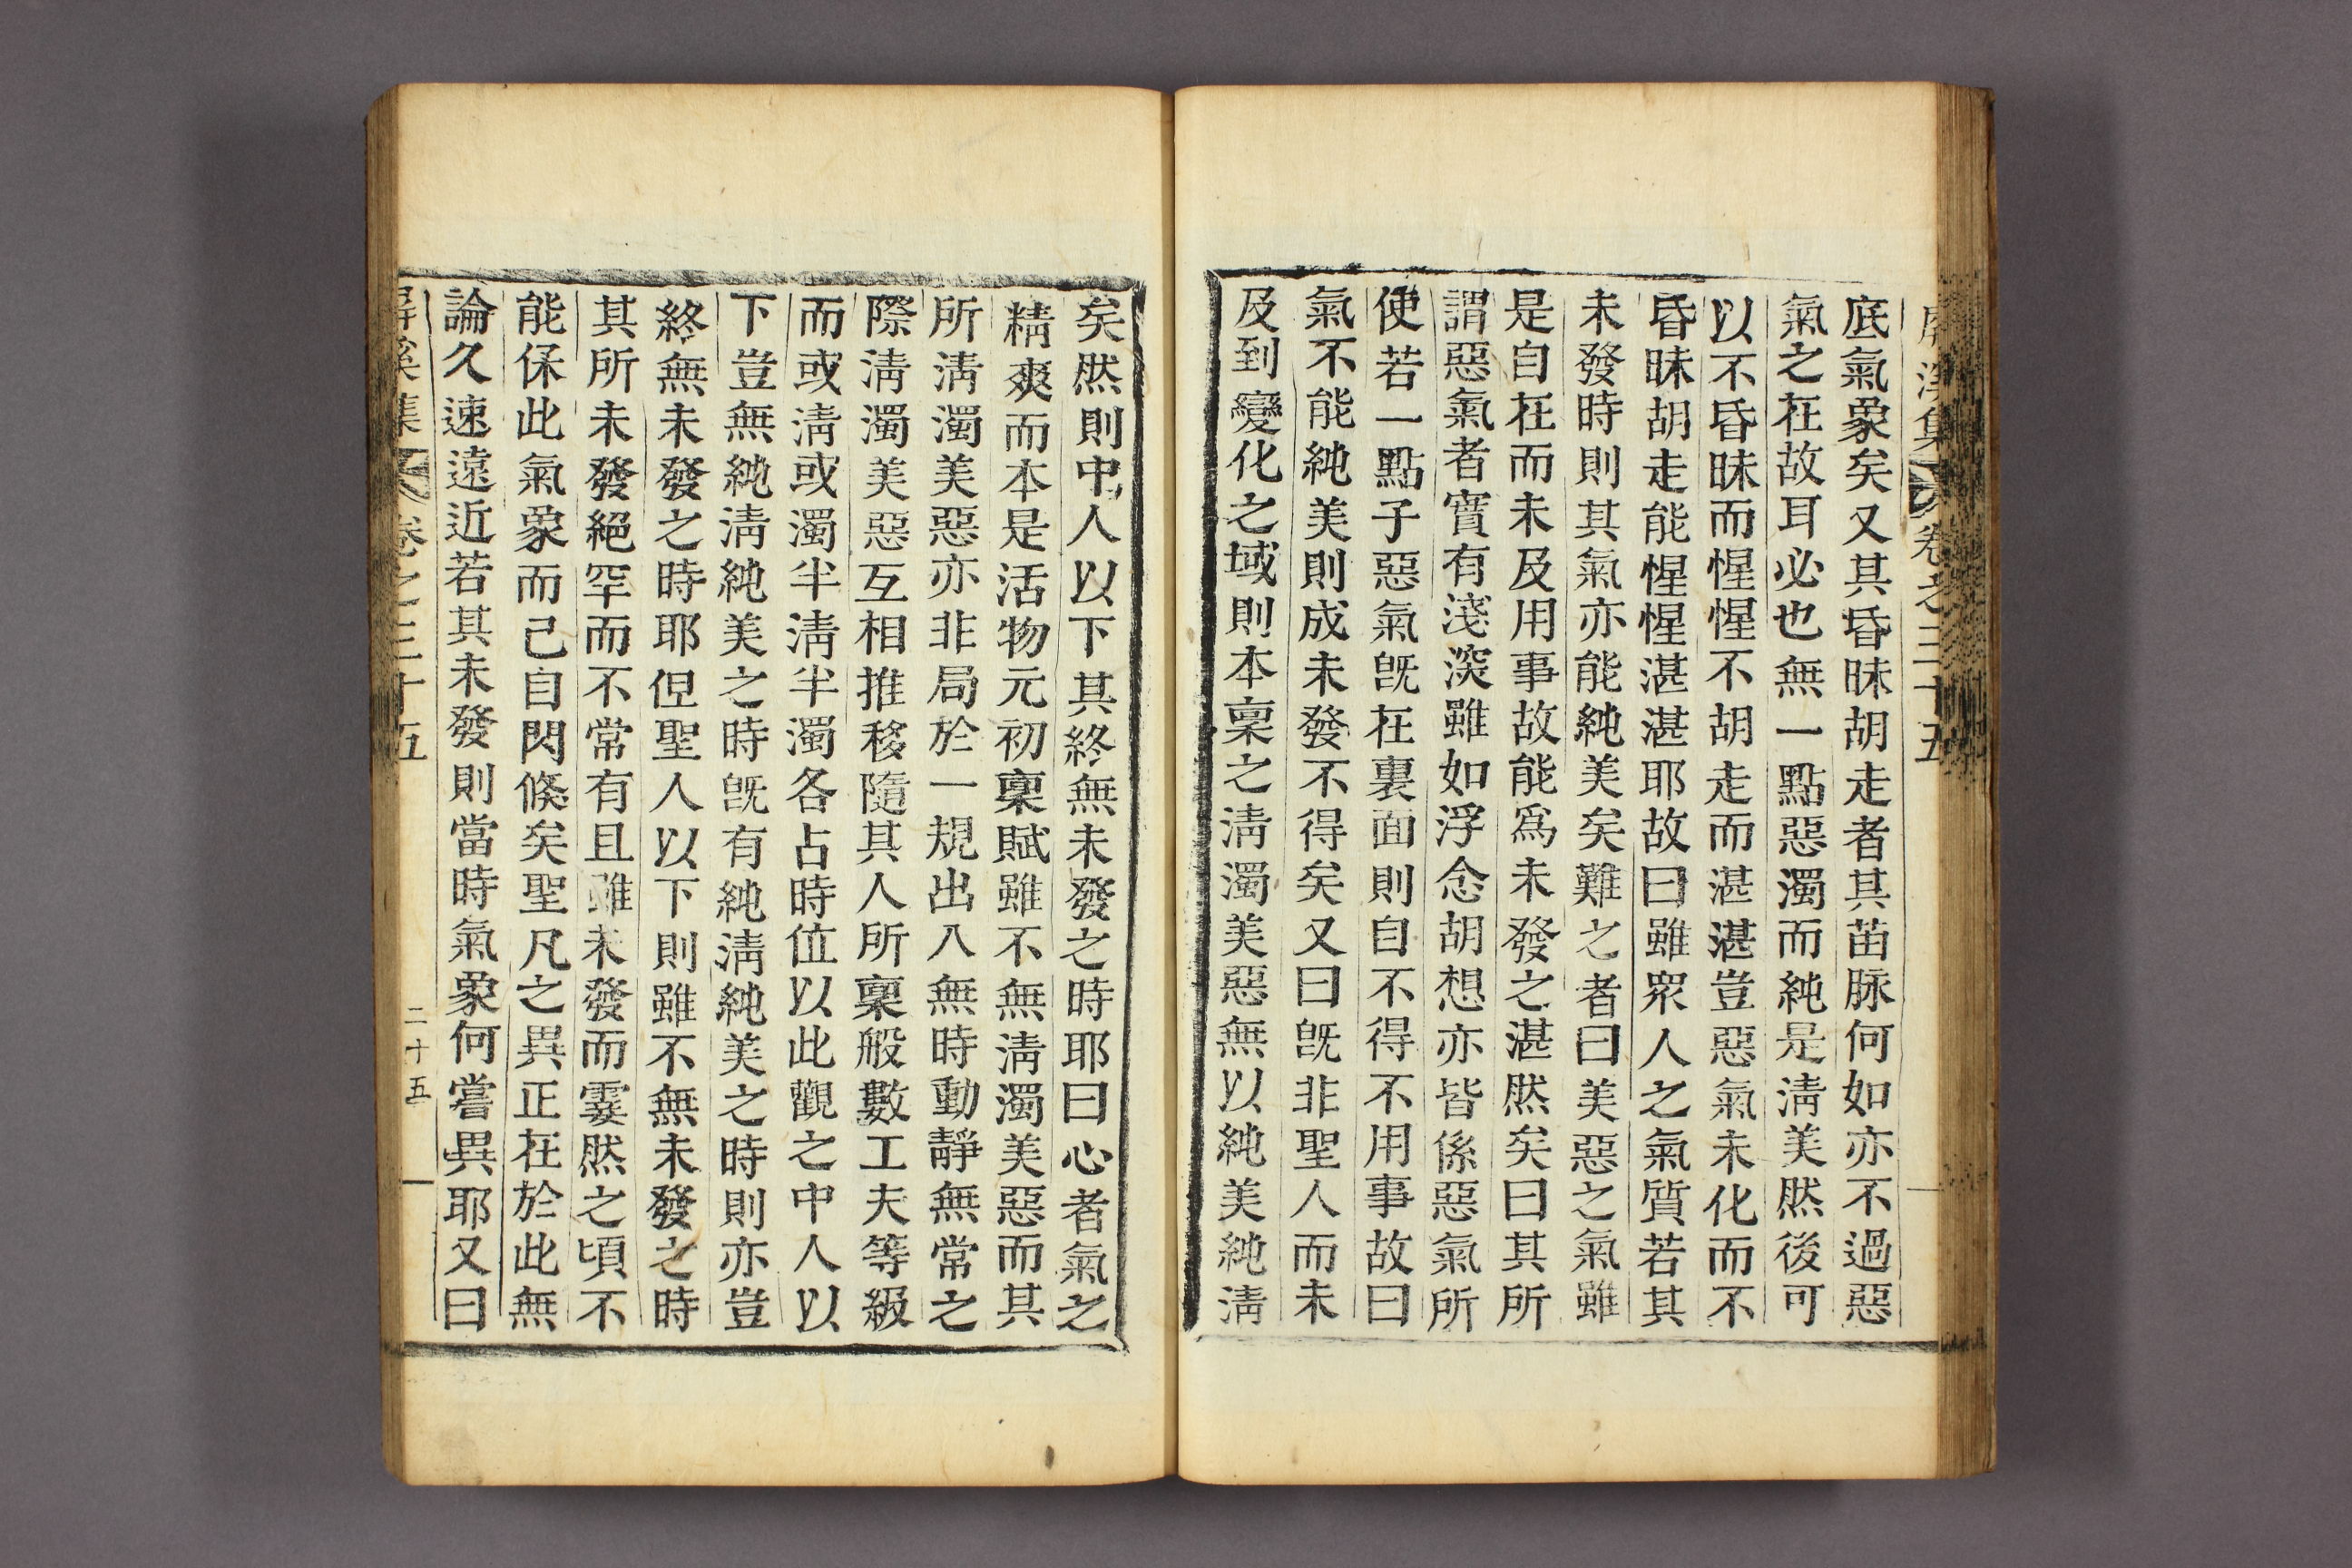 屛溪集 卷之三十五
底氣象矣又其昏昧胡走者其苗脉何如亦不過惡
氣之在故耳必也無一點惡濁而純是淸美然後可
以不昏昧而惺惺不胡走而湛湛豈惡氣未化而不
昏昧胡走能惺惺湛湛耶故曰雖衆人之氣質若其
未發時則其氣亦能純美矣難之者曰美惡之氣雖
是自在而未及用事故能爲未發之湛然矣曰其所
謂惡氣者實有淺深雖如浮念胡想亦皆係惡氣所
使若一點子惡氣旣在裏面則自不得不用事故曰
氣不能純美則成未發不得矣又曰旣非聖人而未
及到變化之域則本稟之淸濁美惡無以純美純淸
矣然則中人以下其終無未發之時耶曰心者氣之
精爽而本是活物元初稟賦雖不無淸濁美惡而其
所淸濁美惡亦非局於一規出入無時動靜無常之
際淸濁美惡互相推移隨其人所稟般數工夫等級
而或淸或濁半淸半濁各占時位以此觀之中人以
下豈無純淸純美之時旣有純淸純美之時則亦豈
終無未發之時耶但聖人以下則雖不無未發之時
其所未發絕罕而不常有且雖未發而霎然之頃不
能保此氣象而已自閃倏矣聖凡之異正在於此無
論久速遠近若其未發則當時氣象何嘗異耶又曰
屛溪集 卷之三十五 二十五